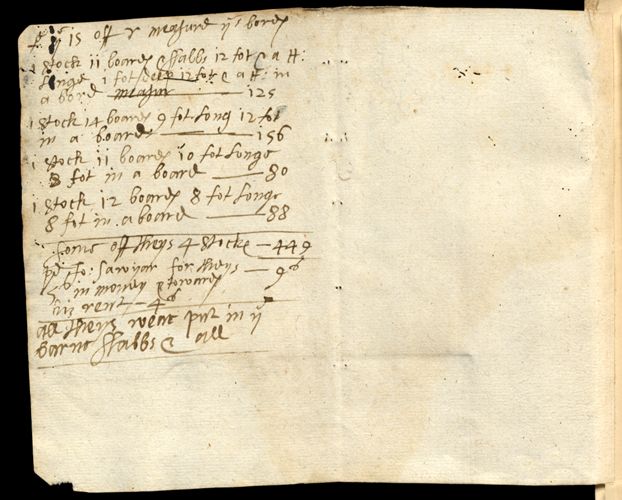 is off r measure yᵉ bords
1 stock 11 boards & slabs 12 fot & a H:
Longe 1 fot 12 fot & a H: in
a bord 125
1 stock 14 boards 9 fot Long 12 fot
in a board 156
1 stock 11 boards 10 fot Longe
8 fot in a board 80
1 stock 12 boards 8 fot Longe
8 fot in a board 88
some off theys 4 stocks 449
pd to: Sawyar for theys 9s
in money & towards
his rent 4s
all theys wear put in yᵉ
barne slabbs & all